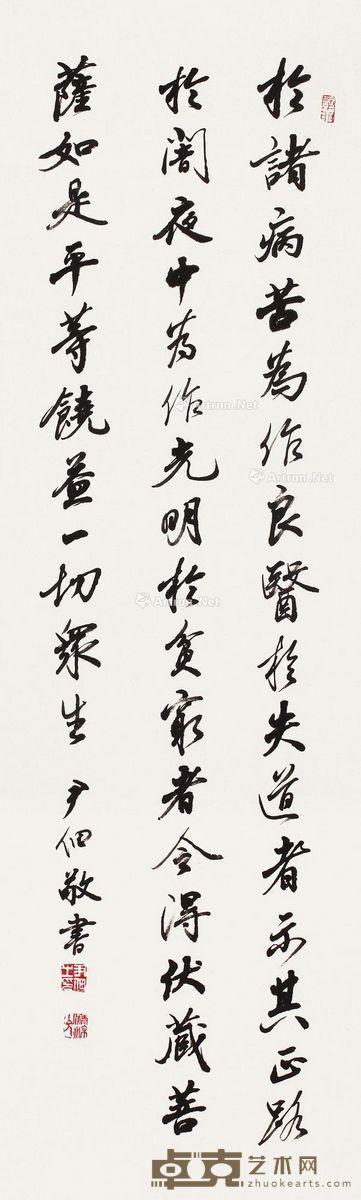 於諸病苦為作良醫於失道者示其正路
於闇夜中為作光明於貧窮者令得伏藏菩
薩如是平等饒益一切眾生
尹佃敬書
Artron.Net
Artron.Net
Artron.Net
Artron.Net
卓克艺术网
zhuokearts.com